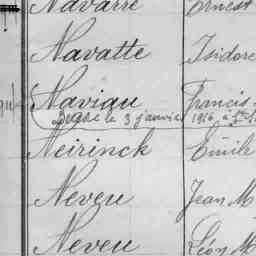 Navarre Ernest
Navatte Isidore
Naviau Francis
Décédé le 3 janvier 1916, à
Neirinck Emile
Neveu Jean M
Neveu Léon M